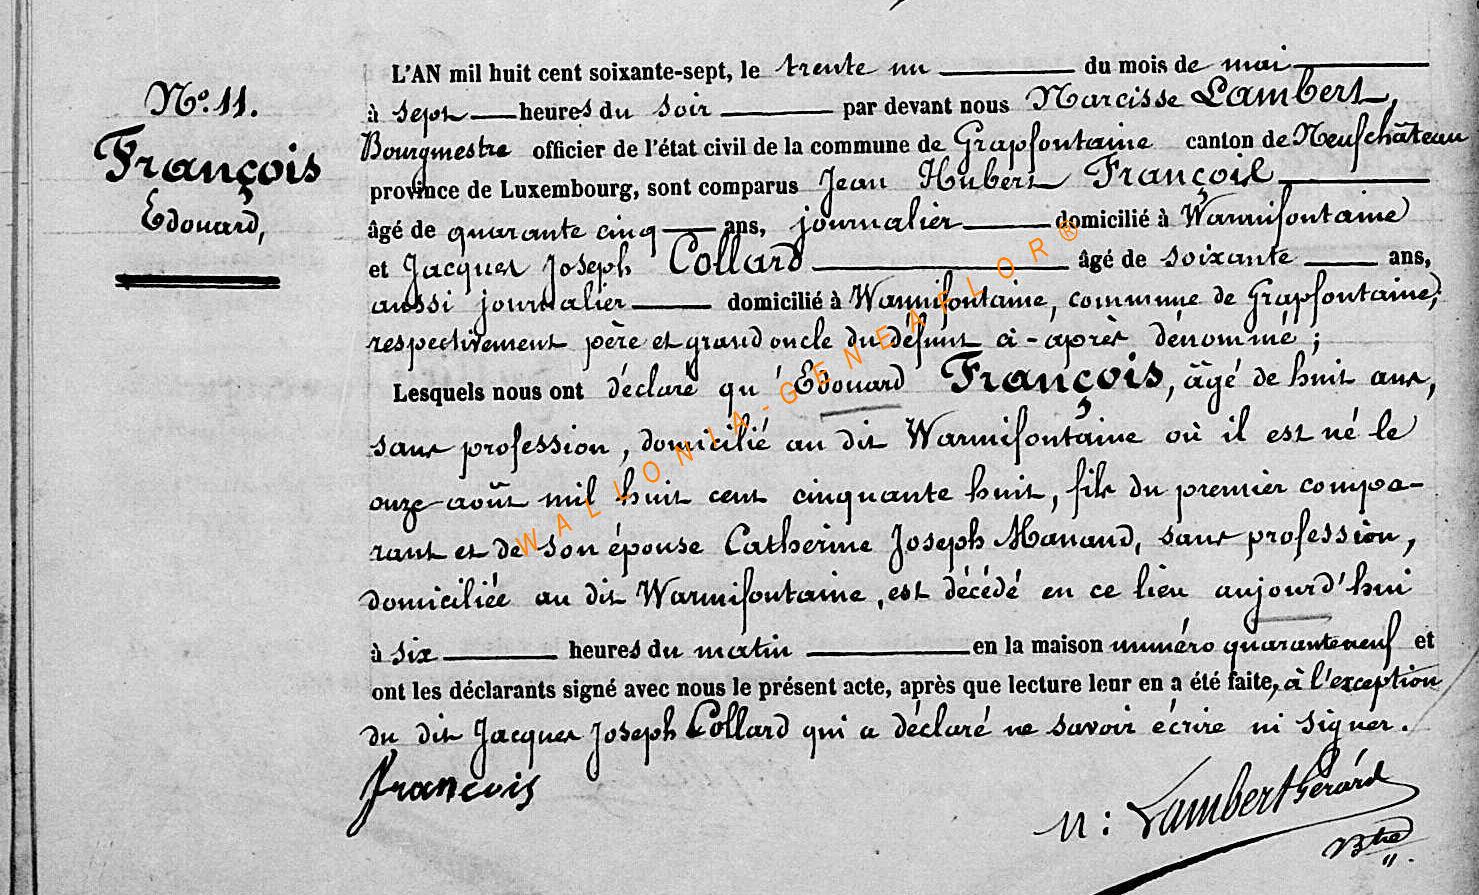 N.º 11.
François
Edouard,
L'AN mil huit cent soixante-sept, le trente un du mois de mai
à sept heures du soir par devant nous Narcisse Lambert,
Bourgmestre officier de l'état civil de la commune de Grapfontaine canton de Neufchâteau
province de Luxembourg, sont comparus Jean Hubert François
âgé de quarante cinq ans, journalier domicilié à Warmifontaine
et Jacques Joseph Collard âgé de soixante ans,
aussi journalier domicilié à Warmifontaine, commune de Grapfontaine,
respectivement père et grand oncle du défunt ci-après dénommé ;
Lesquels nous ont déclaré qu'Edouard François, âgé de huit ans,
sans profession, domicilié au dit Warmifontaine où il est né le
onze août mil huit cent cinquante huit, fils du premier compa-
rant et de son épouse Catherine Joseph Manand, sans profession,
domiciliée au dit Warmifontaine, est décédé en ce lieu aujourd'hui
à six heures du matin en la maison numéro quarante neuf et
ont les déclarants signé avec nous le présent acte, après que lecture leur en a été faite, à l'exception
du dit Jacques Joseph Collard qui a déclaré ne savoir écrire ni signer.
François
N: Lambert Gérard
Btre
WALLONIA-GENEAFLOR®